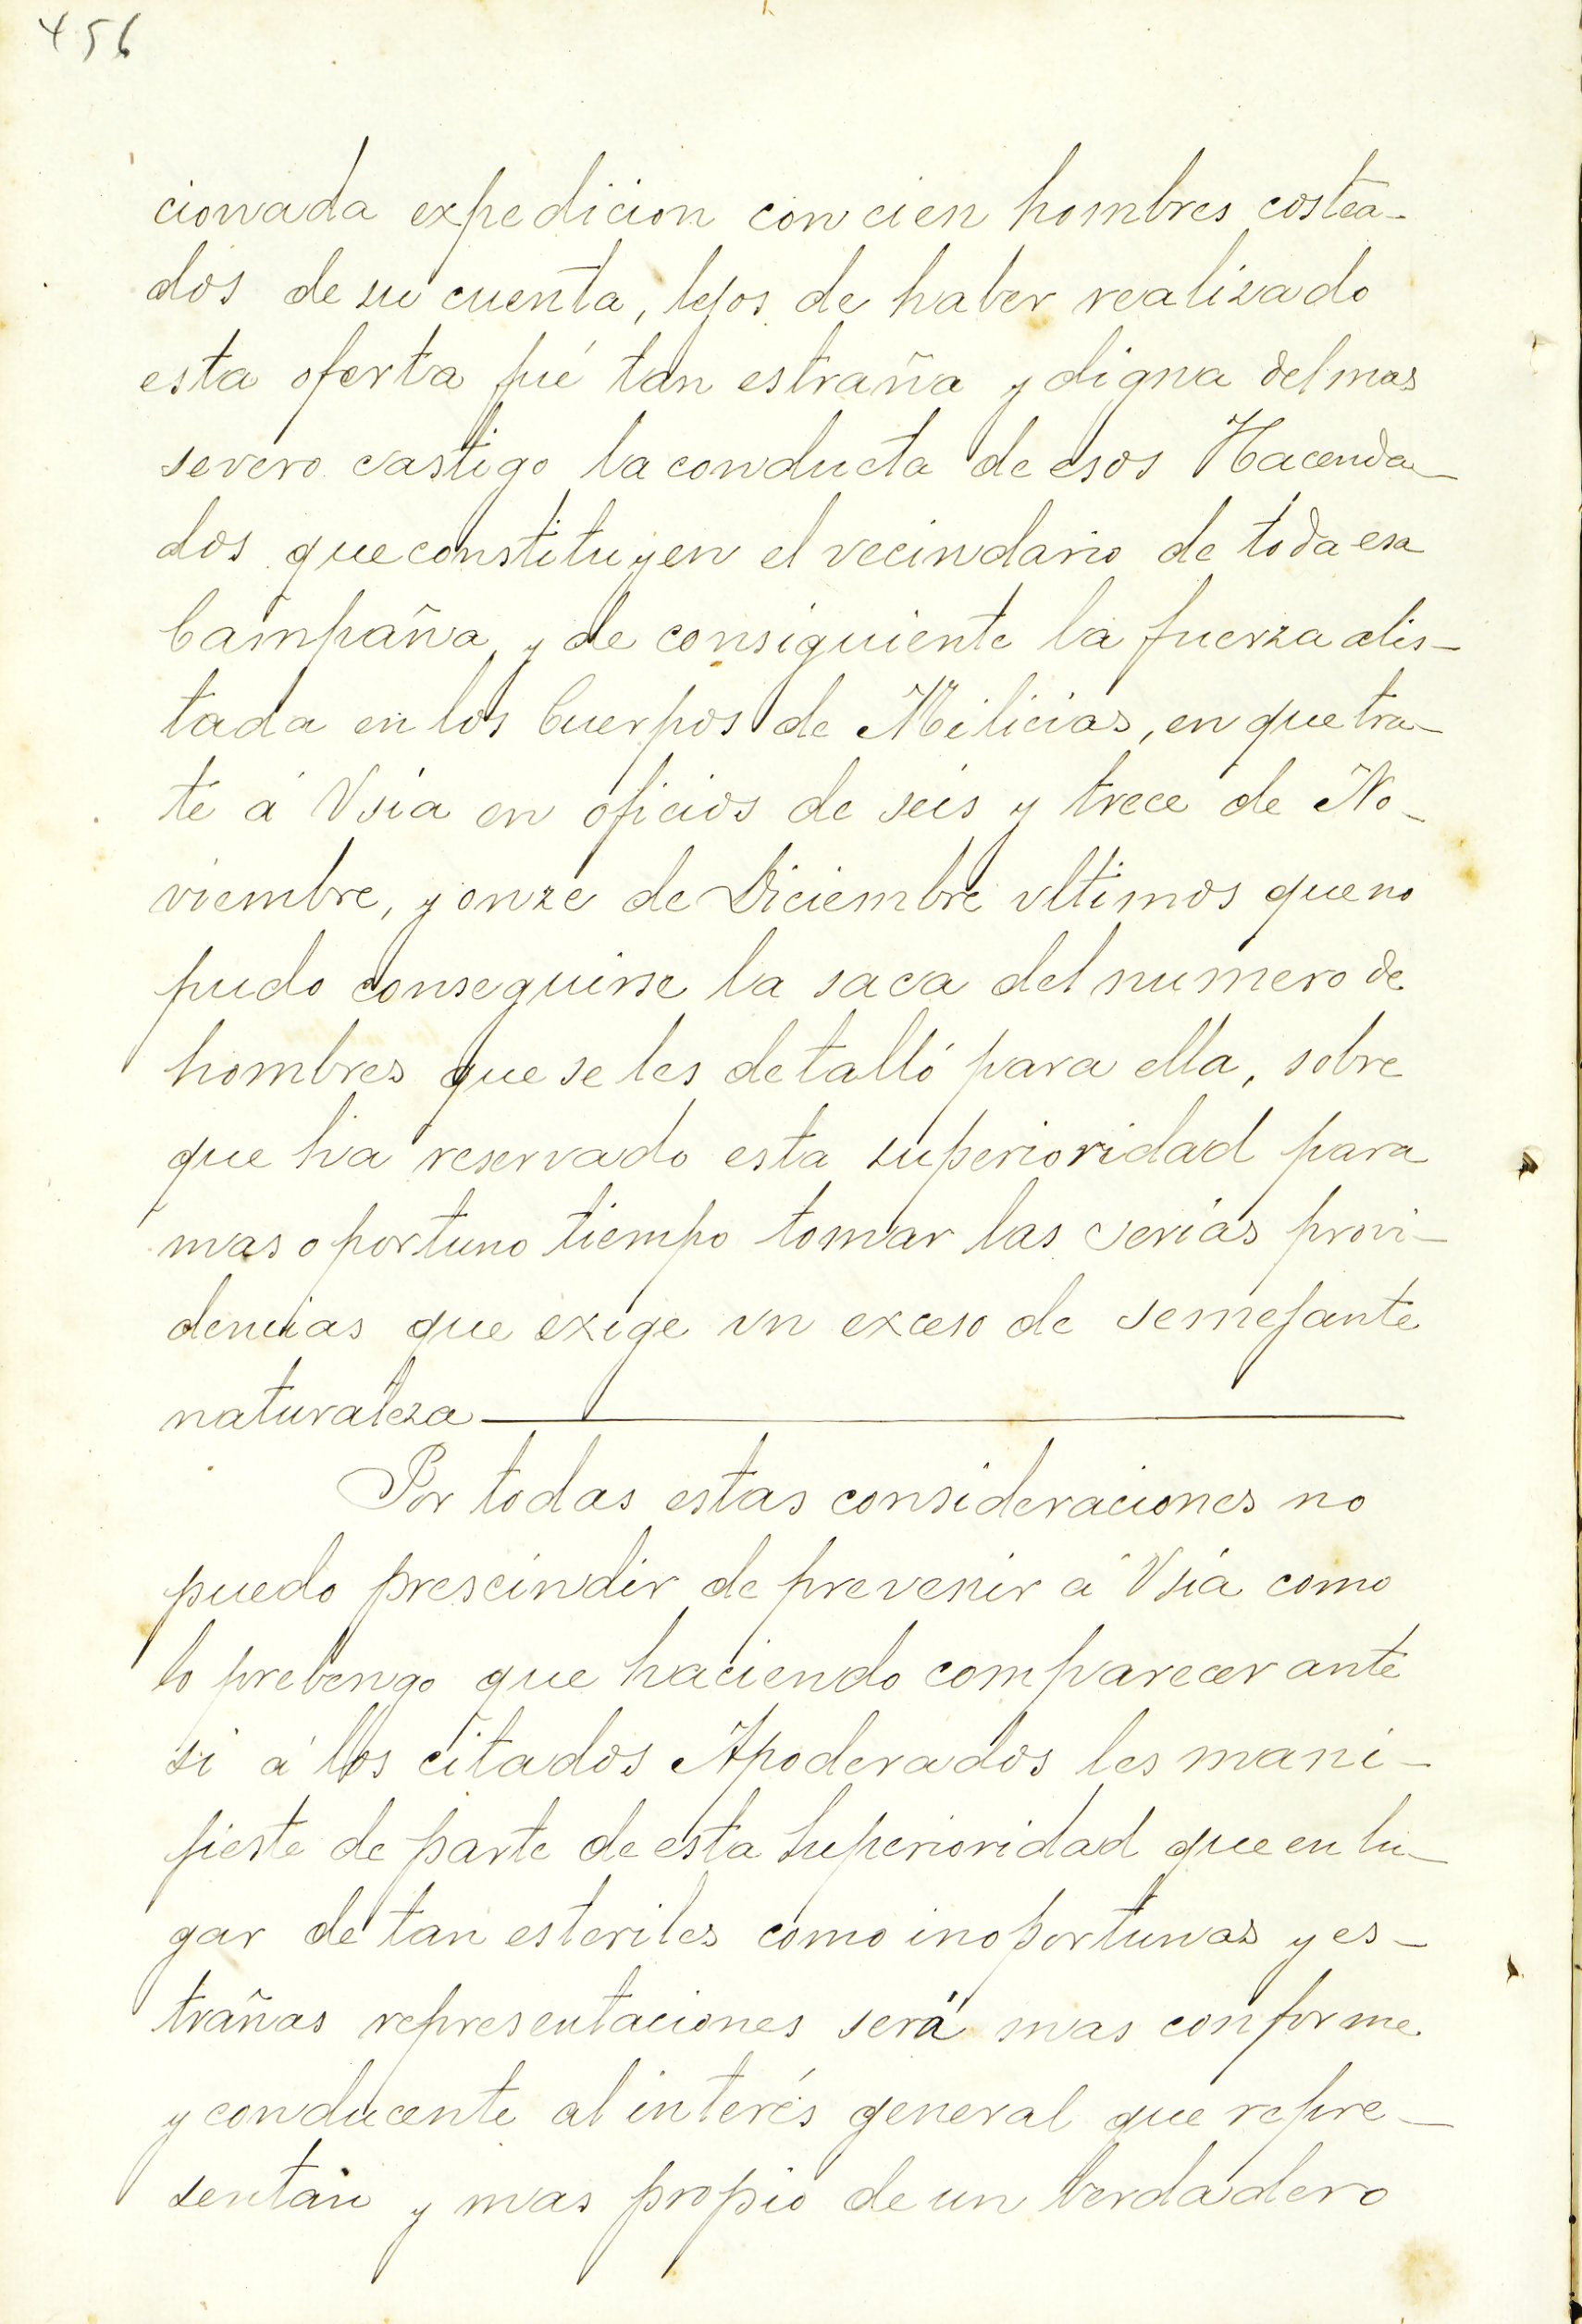 456
cionada expedicion con cien hombres costea-
dos de su cuenta, lejos de haber realizado
esta oferta fué tan estraña y digna del mas
severo castigo la conducta de esos Hacenda-
dos que constituyen el vecindario de toda esa
Campaña, y de consiguiente la fuerza alis-
tada en los Cuerpos de Milicias, en que tra-
té á Vsía en oficios de seis y trece de No-
viembre, y onze de Diciembre vltimos que no
pudo conseguirse la saca del numero de
hombres que se les detalló para ella, sobre
que ha reservado esta superioridad para
mas oportuno tiempo tomar las serias provi-
dencias que exige vn exceso de semejante
naturaleza
Por todas estas consideraciones no
puedo prescindir de prevenir á Vsía como
lo prebengo que haciendo comparecer ante
si á los citados Apoderados les mani-
fieste de parte de esta Superioridad que en lu-
gar de tan esteriles como inoportunas y es-
trañas representaciones será mas conforme
y conducente al interés general que repre-
sentan y mas propio de un berdadero